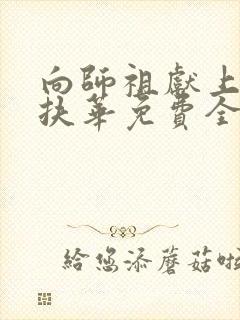 向師祖獻上
扶華免費全
給您添蘑菇啦